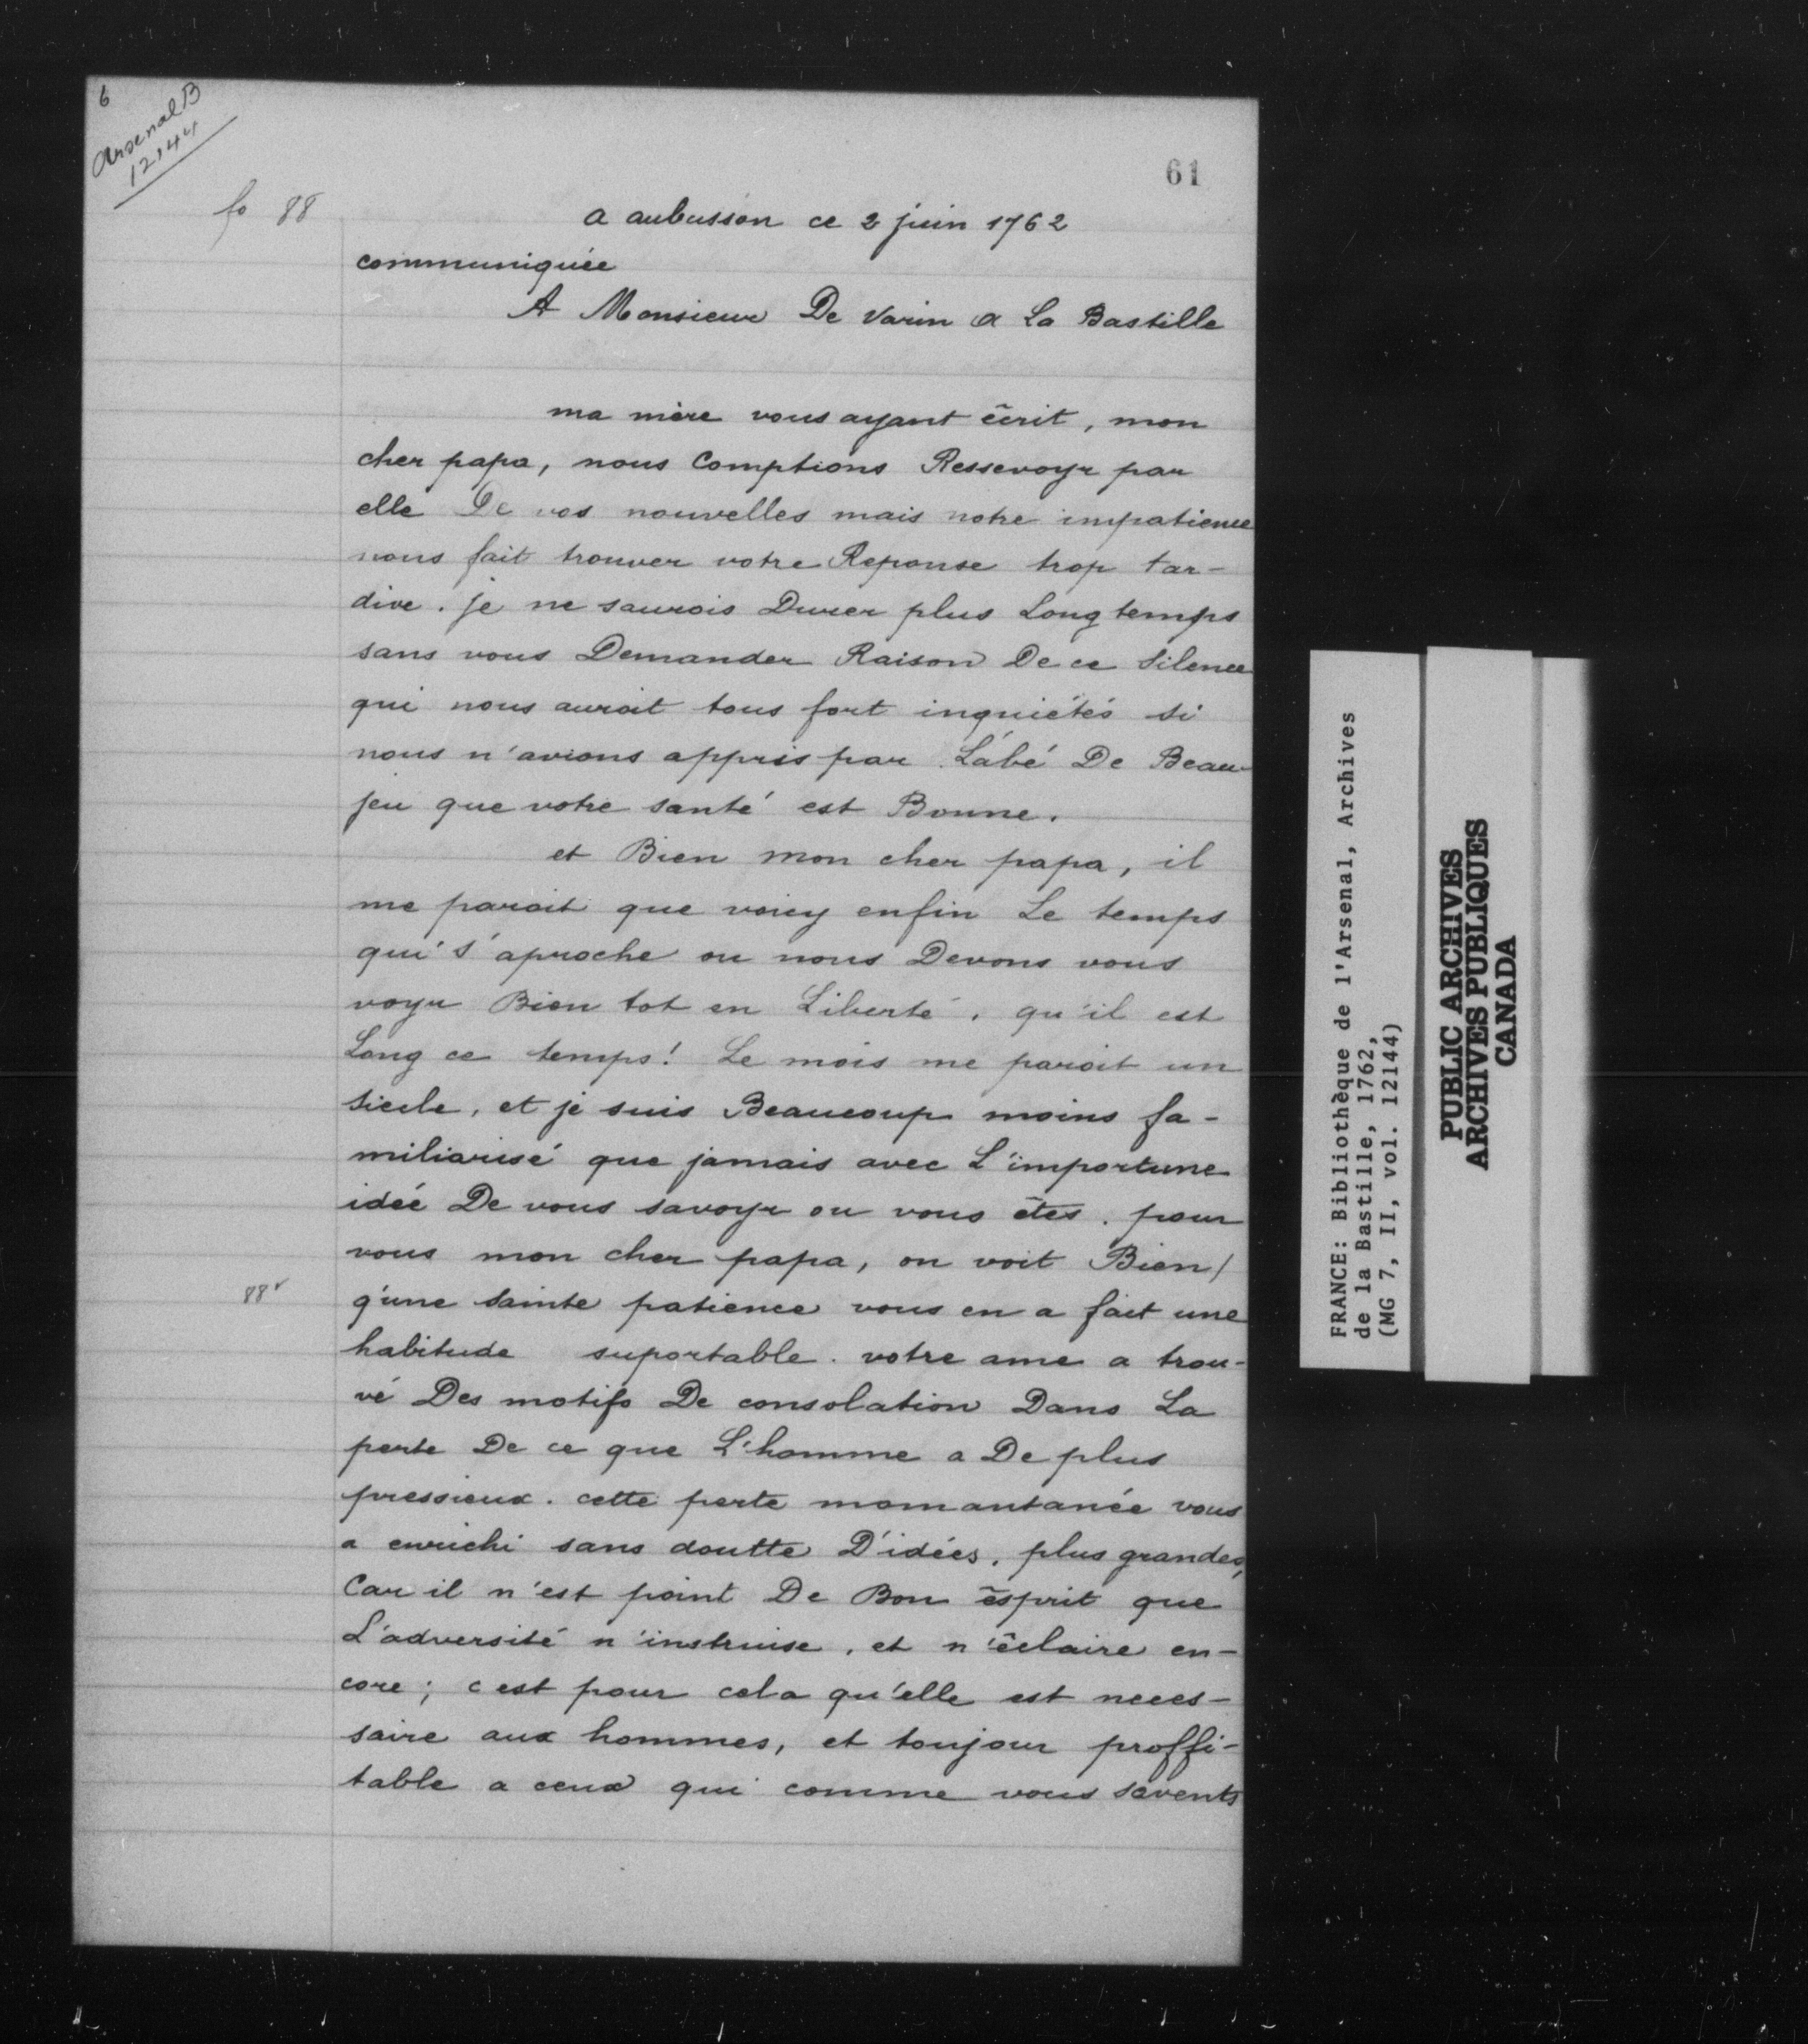 6
Arsenal B
12144
61
fo 88
a aubusson ce 2 juin 1762
communiquée
A Monsieur De Varin a La Bastille
ma mère vous ayant écrit, mon
cher papa, nous Comptions Ressevoyr par
elle De vos nouvelles mais notre impatience
nous fait trouver votre Reponse trop tar-
dive. je ne saurois Durer plus Longtemps
sans vous Demander Raison De ce Silence
qui nous auroit tous fort inquiétés si
nous n'avions appris par L'abé De Beau-
jeu que votre santé est Bonne.
et Bien mon cher papa, il
me paroit que voicy enfin Le temps
qui s'aproche ou nous Devons vous
voyr Bien tot en Liberté, qu'il est
Long ce temps! Le mois me paroit un
siecle, et je suis Beaucoup moins fa-
miliarisé que jamais avec L'importune
idée De vous savoyr ou vous êtes. pour
vous mon cher papa, on voit Bien/
88v q'une sainte patience vous en a fait une
habitude suportable. votre ame a trou-
vé Des motifs De consolation Dans La
perte De ce que L'homme a De plus
pressieux. cette perte momantanée vous
a enrichi sans doutte D'idées, plus grandes,
Car il n'est point De Bon esprit que
L'adversité n'instruise, et n'éclaire en-
core; c est pour cela qu'elle est neces-
saire aux hommes, et toujour proffi-
table a ceux qui comme vous savents
FRANCE: Bibliothèque de l'Arsenal, Archives
de la Bastille, 1762,
(MG 7, II, vol. 12144)
PUBLIC ARCHIVES
ARCHIVES PUBLIQUES
CANADA